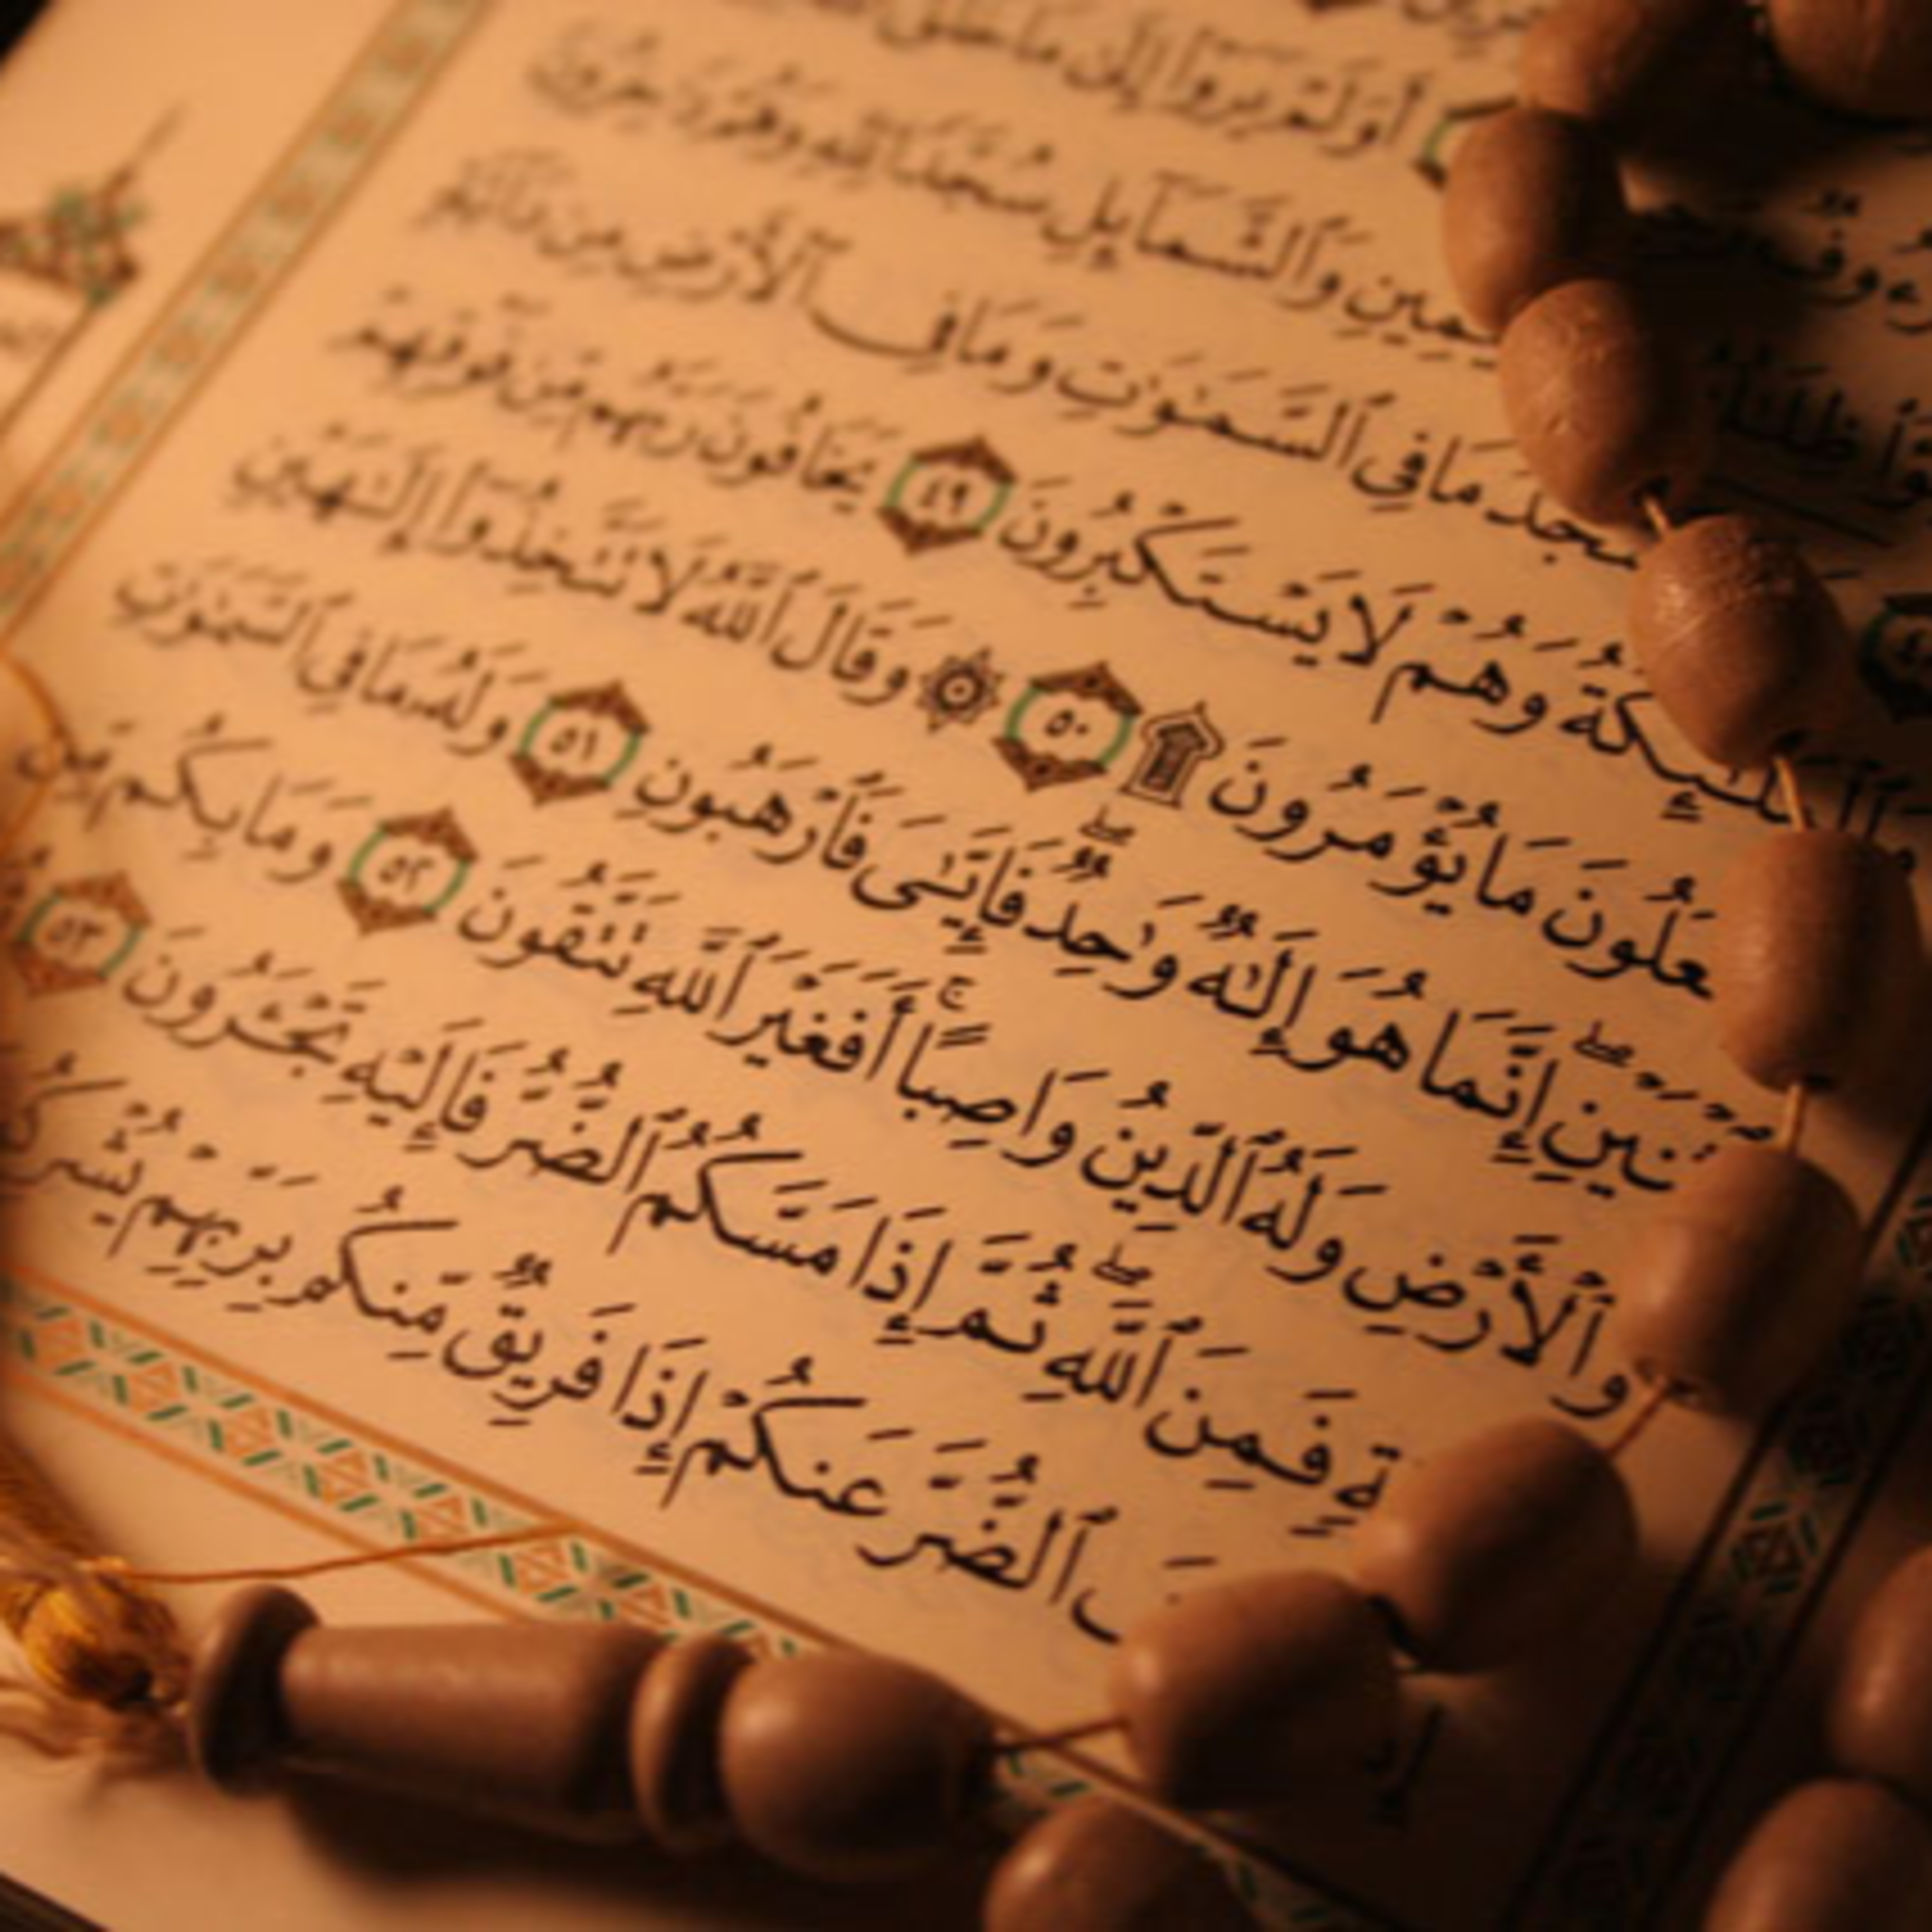 أَوَلَمْ يَرَوْا۟ إِلَىٰ مَا خَلَقَ
وَٱلشَّمَآئِلِ سُجَّدًا لِّلَّهِ وَهُمْ دَٰخِرُونَ
مَا فِى ٱلسَّمَٰوَٰتِ وَمَا فِى ٱلْأَرْضِ مِن دَآبَّةٍ
وَهُمْ لَا يَسْتَكْبِرُونَ ٤٩ يَخَافُونَ رَبَّهُم مِّن فَوْقِهِمْ
مَا يُؤْمَرُونَ ۩ ٥٠ ۞ وَقَالَ ٱللَّهُ لَا تَتَّخِذُوٓا۟ إِلَٰهَيْنِ
إِنَّمَا هُوَ إِلَٰهٌ وَٰحِدٌ ۖ فَإِيَّٰىَ فَٱرْهَبُونِ ٥١ وَلَهُۥ مَا فِى ٱلسَّمَٰوَٰتِ
وَٱلْأَرْضِ وَلَهُ ٱلدِّينُ وَاصِبًا ۚ أَفَغَيْرَ ٱللَّهِ تَتَّقُونَ ٥٢ وَمَا بِكُم مِّن
فَمِنَ ٱللَّهِ ۖ ثُمَّ إِذَا مَسَّكُمُ ٱلضُّرُّ فَإِلَيْهِ تَجْـَٔرُونَ ٥٣
ٱلضُّرَّ عَنكُمْ إِذَا فَرِيقٌ مِّنكُم بِرَبِّهِمْ